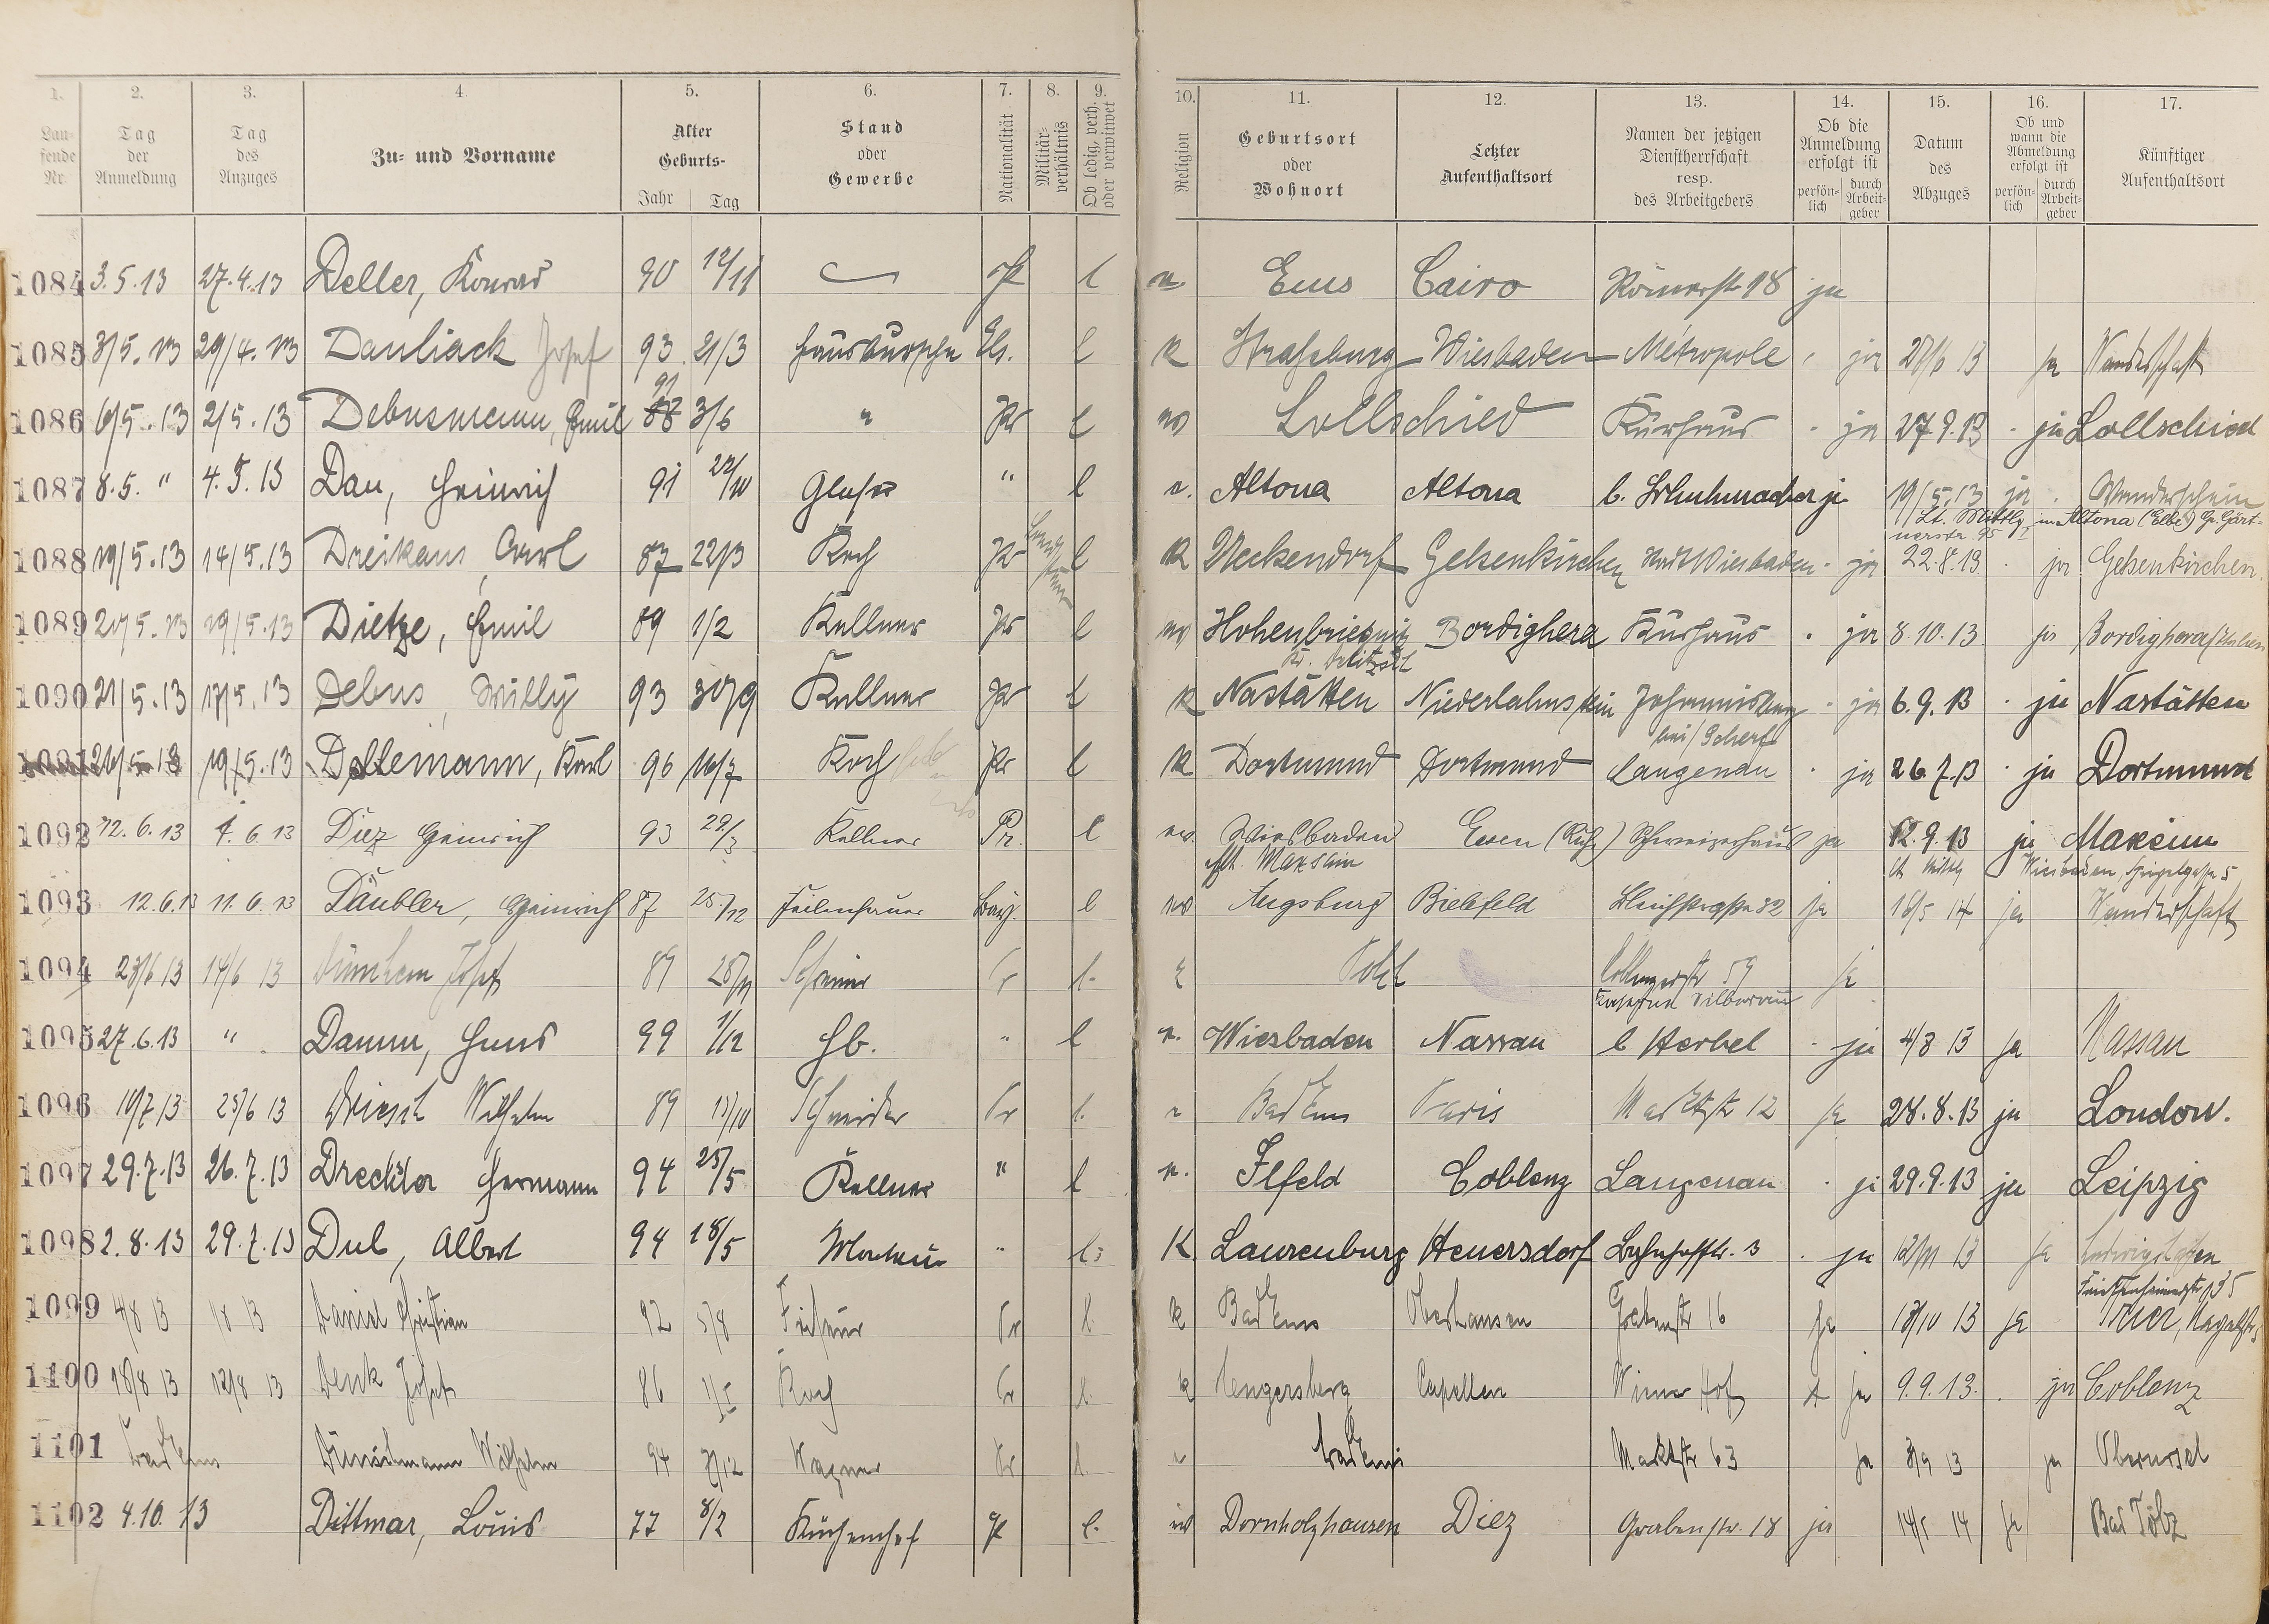 1. 2. 3. 4. 5. 6. 7. 8. 9. 10. 11. 12. 13. 14. 15. 16. 17.
Lau-fende Nr. Tag der Anmeldung Tag des Anzuges Zu- und Vorname Alter Geburts- Jahr Tag Stand oder Gewerbe Nationalität Militär-verhältnis Ob ledig, verh. oder verwitwet Religion Geburtsort oder Wohnort Letzter Aufenthaltsort Namen der jetzigen Dienstherrschaft resp. des Arbeitgebers Ob die Anmeldung erfolgt ist persön-lich durch Arbeit-geber Datum des Abzuges Ob und wann die Abmeldung erfolgt ist persön-lich durch Arbeit-geber Künftiger Aufenthaltsort
1084 3.5.13 27.4.13 Deller, Konrad 90 12/11 l Ems Cairo Römerstr 18 ja
1085 3/5.13 29/4.13 Dauliack Josef 93 21/3 Hausbursche Els. l K Straßburg Wiesbaden Métropole ja 27/6 13 ja Wanderschaft
1086 6/5.13 2/5.13 Debusmann, Emil 91 3/6 " Pr l Lollschied Kurhaus ja 27.9.13 ja Lollschied
1087 8.5. " 4.5.13 Dau, Heinrich 91 22/10 Glaser " l Altona Altona b. Schuhmacher ja 19/5.13 ja Wanderschein
Lt. Mittlg. in Altona (Elbe) Gr. Gärt-nerstr. 95
1088 19/5.13 14/5.13 Dreikaus, Carl 87 22/3 Koch Pr l K Ueckendorf Gelsenkirchen Stadt Wiesbaden ja 22.8.13 ja Gelsenkirchen.
1089 21/5.13 19/5.13 Dietze, Emil 89 1/2 Kellner Pr l Hohenpriesnitz Bordighera Kurhaus ja 8.10.13 ja Bordighera/Italien
Kr. Delitzsch
1090 21/5.13 17/5.13 Debus, Willy 93 30/9 Kellner Pr l K Nastätten Niederlahnstein Johannisberg ja 6.9.13 ja Nastätten
1091 21/5.13 19/5.13 Deltemann, Karl 96 16/7 Koch Pr l K Dortmund Dortmund Langenau ja 26.7.13 ja Dortmund
1092 12.6.13 4.6.13 Diez Heinrich 93 29/3 Kellner Pr. l Wiesbaden Essen (Ruhr) Schweizerhaus ja 12.9.13 ja Maxsain
Maxsain Lt Mittlg Wiesbaden, Spiegelgasse 5
1093 12.6.13 11.6.13 Däubler, Heinrich 87 25/12 Feilenhauer Bay. l Augsburg Bielefeld Bleichstraße 32 ja 16/5 14 ja Wanderschaft
1094 23/6 13 14/6 13 Josef 89 28/11 Schreiner Pr l. Coblenzerstr 59 ja
1095 27.6.13 " Damm, Hans 99 1/12 Hb. " l Wiesbaden Nassau b Herbel ja 4/8 13 ja Nassau
1096 10/7 13 25/6 13 Driesch Wilhelm 89 13/10 Schneider Pr l. Bad Ems Paris Marktstr 12 ja 28.8.13 ja London.
1097 29.7.13 26.7.13 Drechsler Hermann 94 25/5 Kellner " l Ilfeld Coblenz Langenau ja 29.9.13 ja Leipzig
1098 2.8.13 29.7.13 Dul, Albert 94 18/5 " l K. Laurenburg Heuersdorf Bahnhofstr. 3 ja 12/11 13 ja Ludwigshafen
1099 4/8 13 1/8 13 Daniel Christian 92 5/8 Friseur Pr l. k Bad Ems Oberhausen Grabenstr 16 ja 18/10 13 ja Trier, Nagelstr
1100 18/8 13 12/8 13 Denk Josef 86 Koch Pr l. k Hengersberg Capellen Wiener Hof ja 9.9.13. ja Coblenz
1101 Bad Ems Wilhelm 94 7/12 Wagner Pr l. Bad Ems Marktstr 63 ja 8/9 13 ja Oberursel
1102 4.10.13 Dittmar, Louis 77 8/2 Küchenchef l. Dornholzhausen Diez Grabenstr. 18 ja 14/5 14 ja Bad Tölz